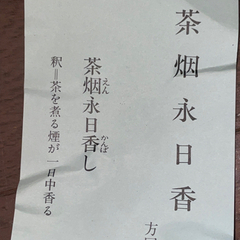 茶烟永日香
方
えん かんば
茶烟永日香し
釈=茶を煮る煙が一日中香る